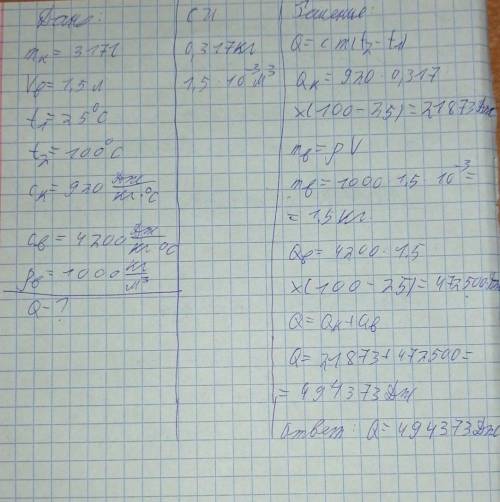 Дано:
mк = 317г
Vв = 1,5 л
t₁ = 25°C
t₂ = 100°C
cк = 920 Дж/кг·°C
cв = 4200 Дж/кг °C
ρв = 1000 кг/м³
Q - ?
СИ
0,317кг
1,5 · 10⁻³ м³
Решение:
Q = c m(t₂ - t₁)
Qк = 920 · 0,317
×(100 - 25) = 21873 Дж
mв = ρ V
mв = 1000 · 1,5 · 10⁻³ =
= 1,5 кг
Qв = 4200 · 1,5
×(100 - 25) = 472500 Дж
Q = Qк + Qв
Q = 21873 + 472500 =
= 494373 Дж
Ответ: Q = 494373 Дж